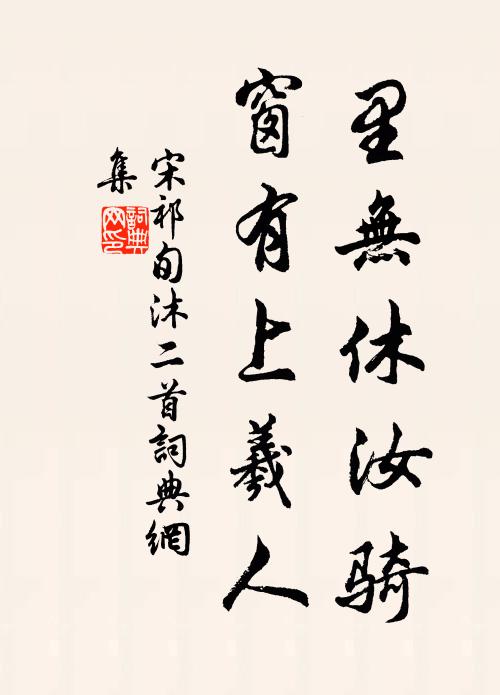 里無休汝騎
窗有上羲人
宋祁旬沐二首詞典網
集
詞典网印